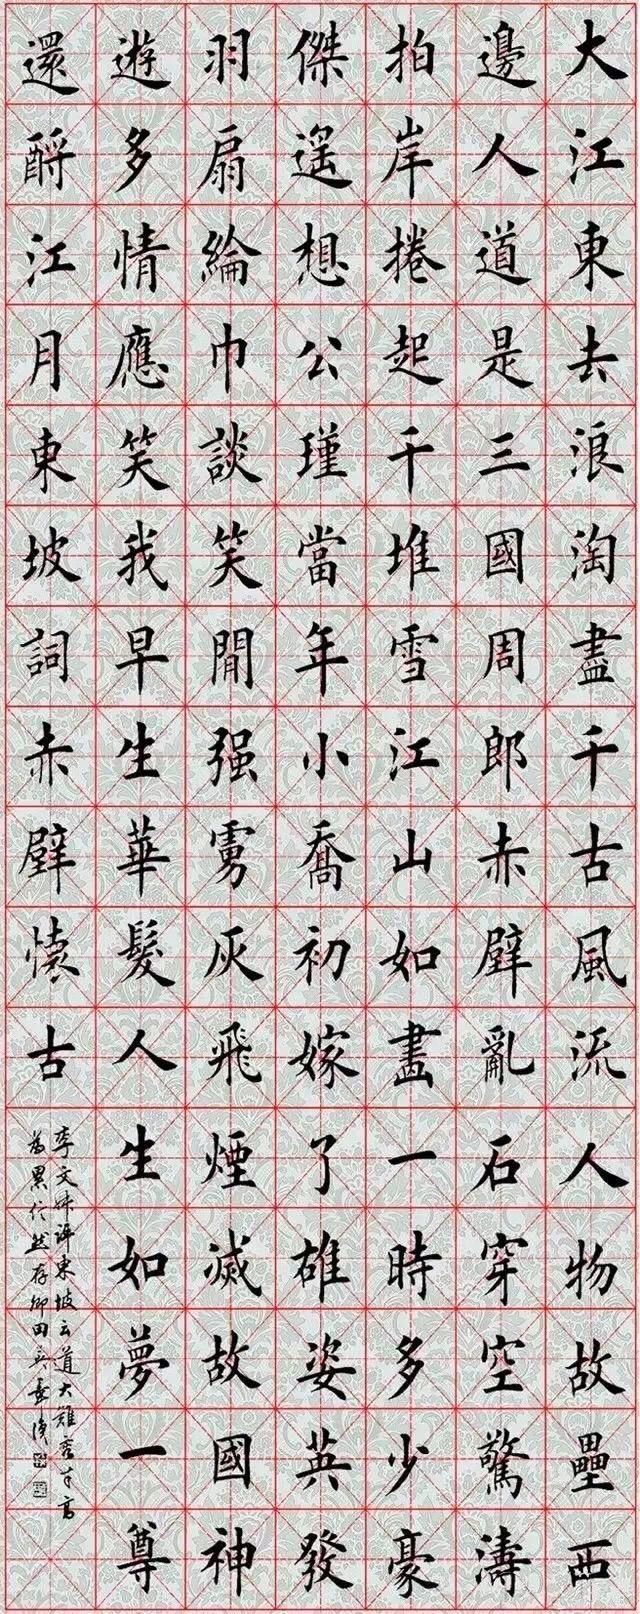 大江東去浪淘盡千古風流人物故壘西
邊人道是三國周郎赤壁亂石穿空驚濤
拍岸捲起千堆雪江山如畫一時多少豪
傑遥想公瑾當年小喬初嫁了雄姿英發
羽扇綸巾談笑間强虜灰飛煙滅故國神
遊多情應笑我早生華髮人生如夢一尊
還酹江月東坡詞赤壁懷古
李文評東坡云道大難容才高
為累信然存卿田英章